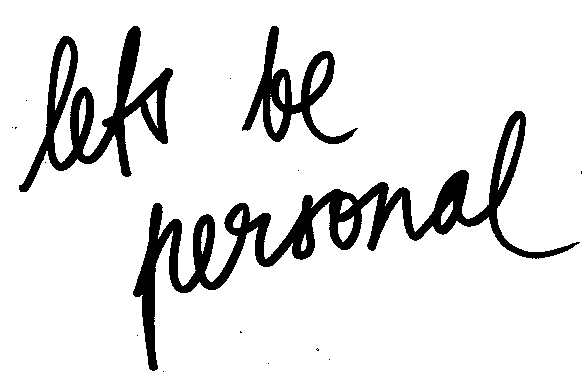 lets be
personal